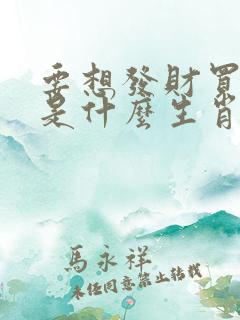 要想發財買
是什麼生肖
馬永祥
未任同意禁止转載